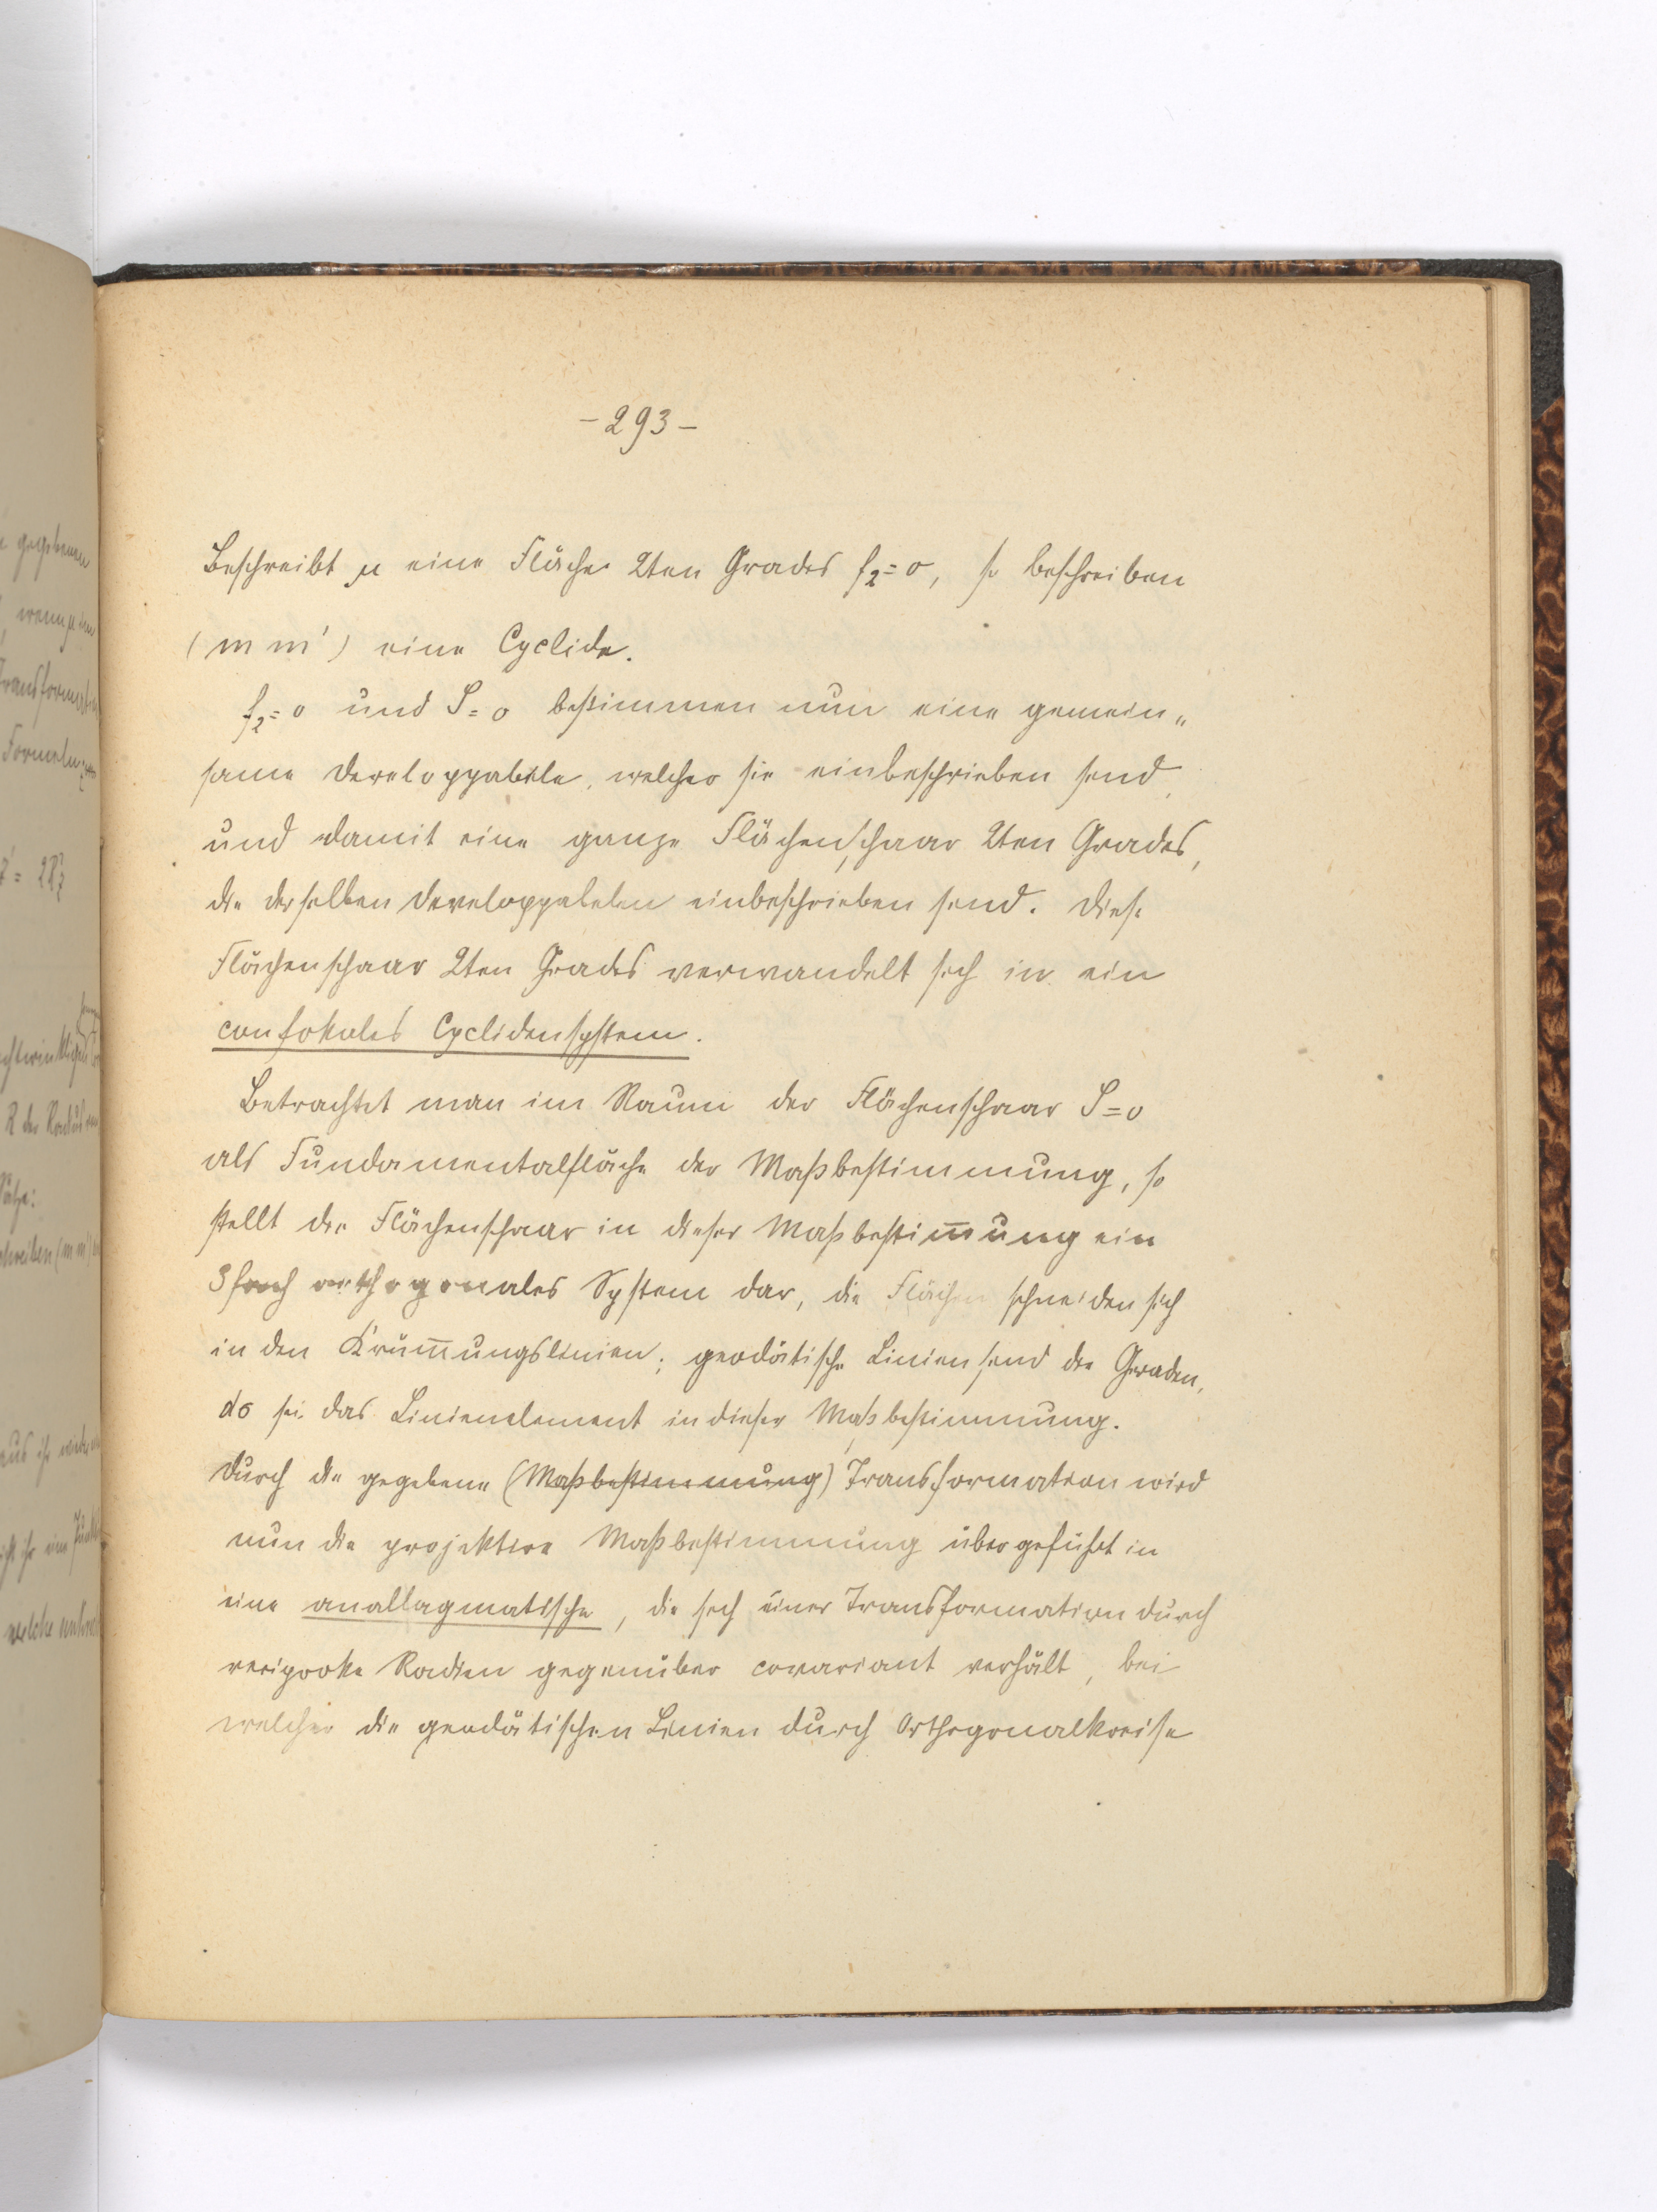 - 293 -
Beschreibt μ eine Fläche 2ten Grades f₂ = 0, so beschreiben
(m m') eine Cyclide.
f₂ = 0 und S = 0 bestimmen nun eine gemein„
same Developpabele, welcher sie einbeschrieben sind,
und damit eine ganze Flächenschaar 2ten Grades,
die derselben Developpabelen einbeschrieben sind. Diese
Flächenschaar 2ten Grades verwandelt sich in ein
confokales Cyclidensystem.
Betrachtet man im Raum der Flächenschaar S = 0
als Fundamentalfläche der Maßbestimmung, so
stellt die Flächenschaar in dieser Maßbestim̅ung ein
3fach orthogonales System dar, die Flächen schneiden sich
in den Krüm̅ungslinien; geodätische Linien sind die Geraden,
dσ sei das Linienelement in dieser Maßbestimmung.
Durch die gegebene (Maßbestimmung) Transformation wird
nun die projektive Maßbestimmung übergeführt in
eine anallagmatische, die sich einer Transformation durch
reciproke Radien gegenüber covariant verhält, bei
welcher die geodätischen Linien durch Orthogonalkreise
gegebenen
wenn μ
Transformation
Formeln
R der Radius
Sätze:
beschreiben (m m')
welche